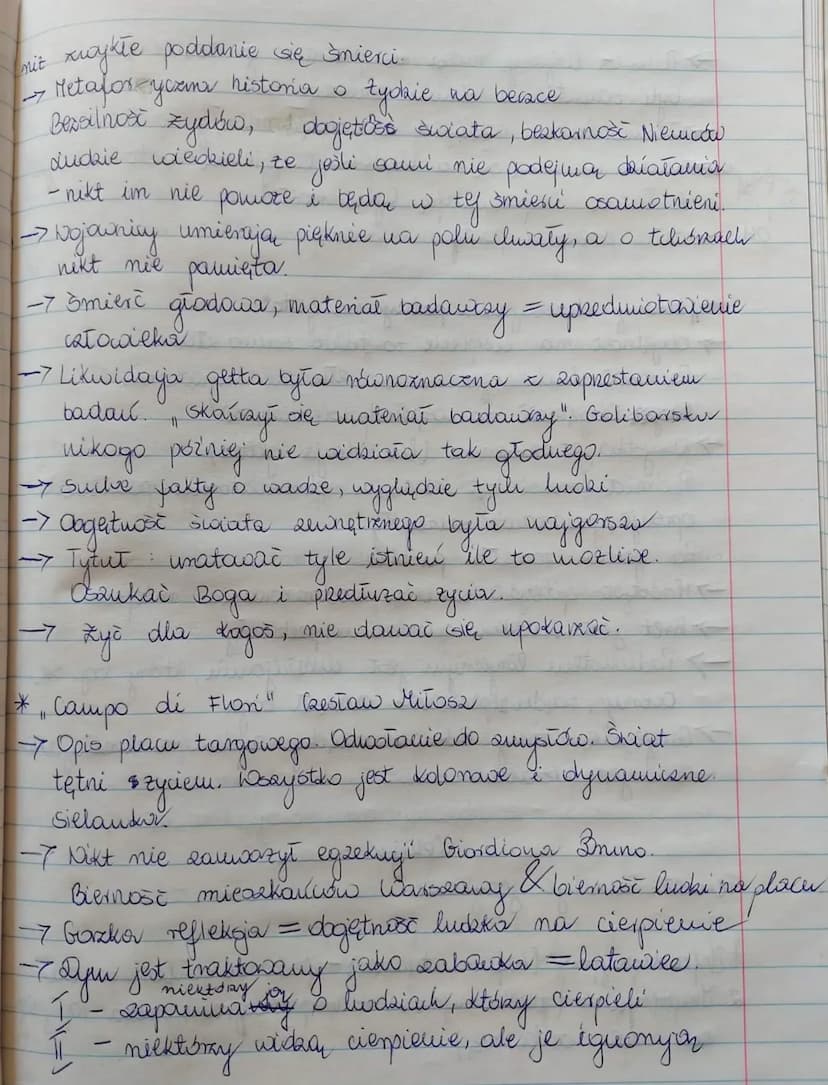 niż zwykłe poddanie się śmierci.
→ Metaforyczna historia o Żydzie na beczce
Bezsilność żydów, obojętość świata, bezkarność Niemców
Ludzie wiedzieli, że jeśli sami nie podejmą działania
- nikt im nie pomoże i będą w tej śmierci osamotnieni.
→ Wojownicy umierają pięknie na polu chwały, a o tchórzach
nikt nie pamięta.
→ śmierć głodowa, materiał badawczy = uprzedmiotowienie
człowieka
→ Likwidacja getta była równoznaczna z zaprzestaniem
badań. „Skończył się materiał badawczy". Goliborska
nikogo później nie widziała tak głodnego.
→ Suche fakty o wadze, wyglądzie tych ludzi
→ Obojętność świata zewnętrznego była najgorsza
→ Tytuł: uratować tyle istnień ile to możliwe.
Oszukać Boga i przedłużać życia.
→ żyć dla kogoś, nie dawać się upokarzać.
* „Campo di Fiori" Czesław Miłosz
→ Opis placu targowego. Odwołanie do zmysłów. Świat
tętni życiem. Wszystko jest kolorowe i dynamiczne
sielanka.
→ Nikt nie zauważył egzekucji Giordiona Bruno.
Bierność mieszkańców Warszawy & bierność ludzi na placu
→ Gorzka refleksja = obojętność ludzka na cierpienie
→ Dym jest traktowany jako zabawka = latawiec.
I - niektórzy zapominają o ludziach, którzy cierpieli
II - niektórzy widzą cierpienie, ale je ignorują